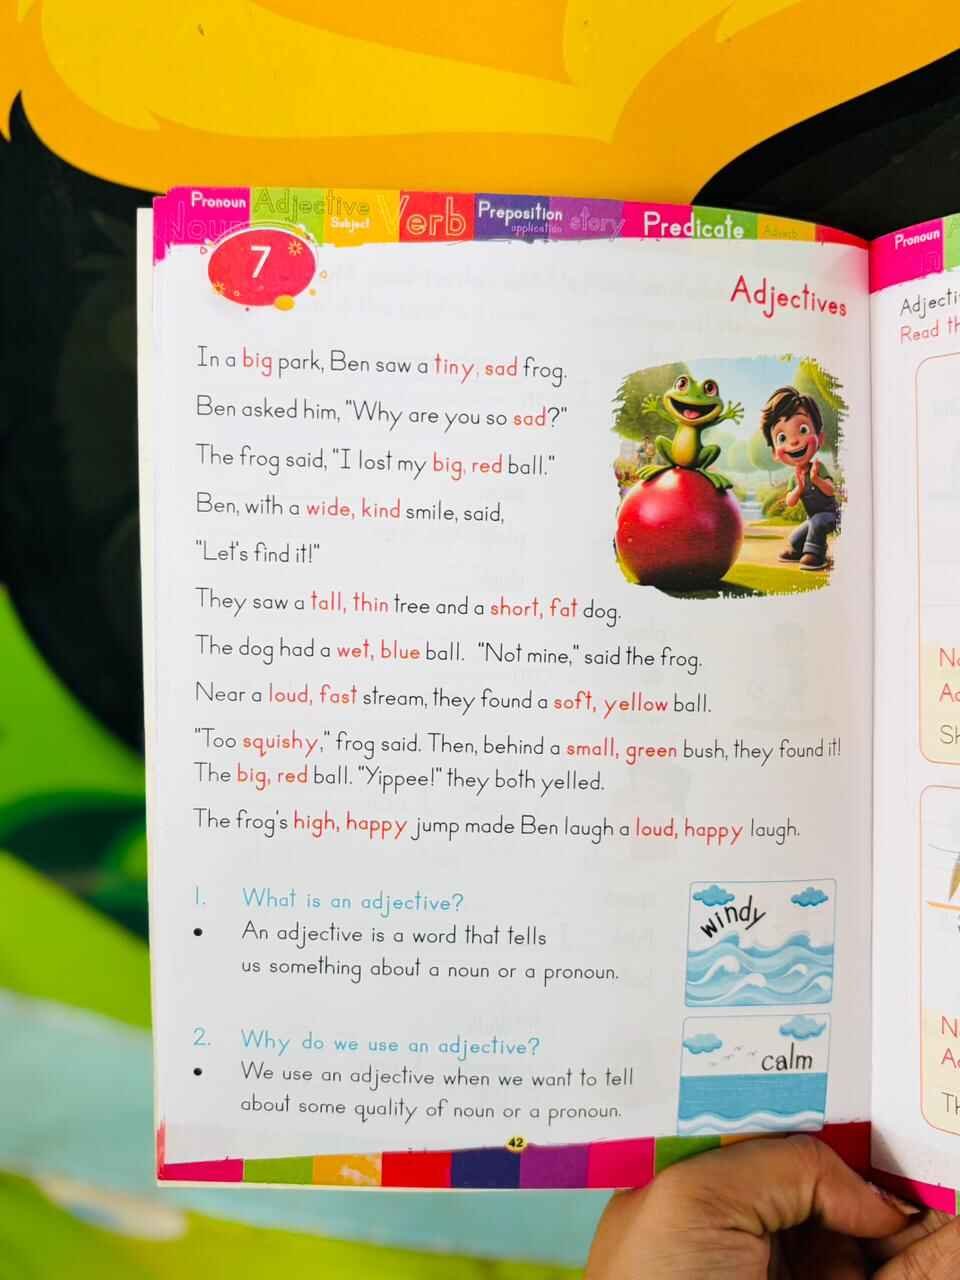 Pronoun Adjective Verb Preposition story Predicate Adverb
Noun Subject application
7
Adjectives
In a big park, Ben saw a tiny, sad frog.
Ben asked him, "Why are you so sad?"
The frog said, "I lost my big, red ball."
Ben, with a wide, kind smile, said,
"Let's find it!"
They saw a tall, thin tree and a short, fat dog.
The dog had a wet, blue ball. "Not mine," said the frog.
Near a loud, fast stream, they found a soft, yellow ball.
"Too squishy," frog said. Then, behind a small, green bush, they found it!
The big, red ball. "Yippee!" they both yelled.
The frog's high, happy jump made Ben laugh a loud, happy laugh.
1. What is an adjective?
• An adjective is a word that tells
us something about a noun or a pronoun.
windy
2. Why do we use an adjective?
• We use an adjective when we want to tell
about some quality of noun or a pronoun.
calm
42
Pronoun